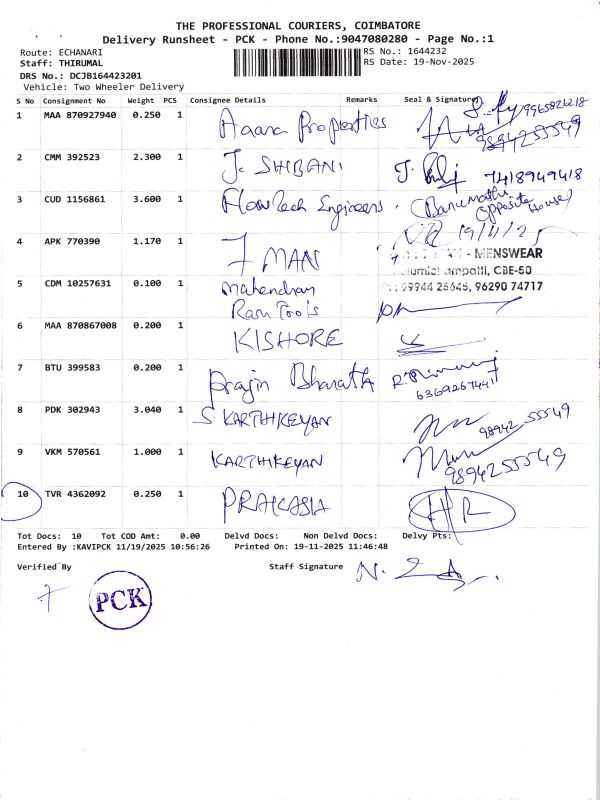 THE PROFESSIONAL COURIERS, COIMBATORE
Delivery Runsheet - PCK - Phone No.:9047080280 - Page No.:1
Route: ECHANARI
RS No.: 1644232
Staff: THIRUMAL
RS Date: 19-Nov-2025
DRS No.: DCJB164423201
Vehicle: Two Wheeler Delivery
S No Consignment No Weight PCS Consignee Details Remarks Seal & Signature
1 MAA 870927940 0.250 1 Aaana Properties 9965826218
9894255549
2 CMM 392523 2.300 1 J. SHIBANI 7418949418
3 CUD 1156861 3.600 1 Flowtech Engineers. (Banumathi
Opposite
House)
19/11/25
4 APK 770390 1.170 1 7 MAN
- MENSWEAR
CBE-50
99944 26645, 96290 74717
5 CDM 10257631 0.100 1 Mahendran
Ram Tools
6 MAA 870867008 0.200 1 KISHORE
7 BTU 399583 0.200 1 Prajin Bharath
6369267441
8 PDK 302943 3.040 1 S. KARTHIKEYAN 98942 55549
9 VKM 570561 1.000 1 KARTHIKEYAN 9894255549
10 TVR 4362092 0.250 1 PRAKASIA
Tot Docs: 10 Tot COD Amt: 0.00 Delvd Docs: Non Delvd Docs: Delvy Pts:
Entered By :KAVIPCK 11/19/2025 10:56:26 Printed On: 19-11-2025 11:46:48
Verified By Staff Signature
PCK